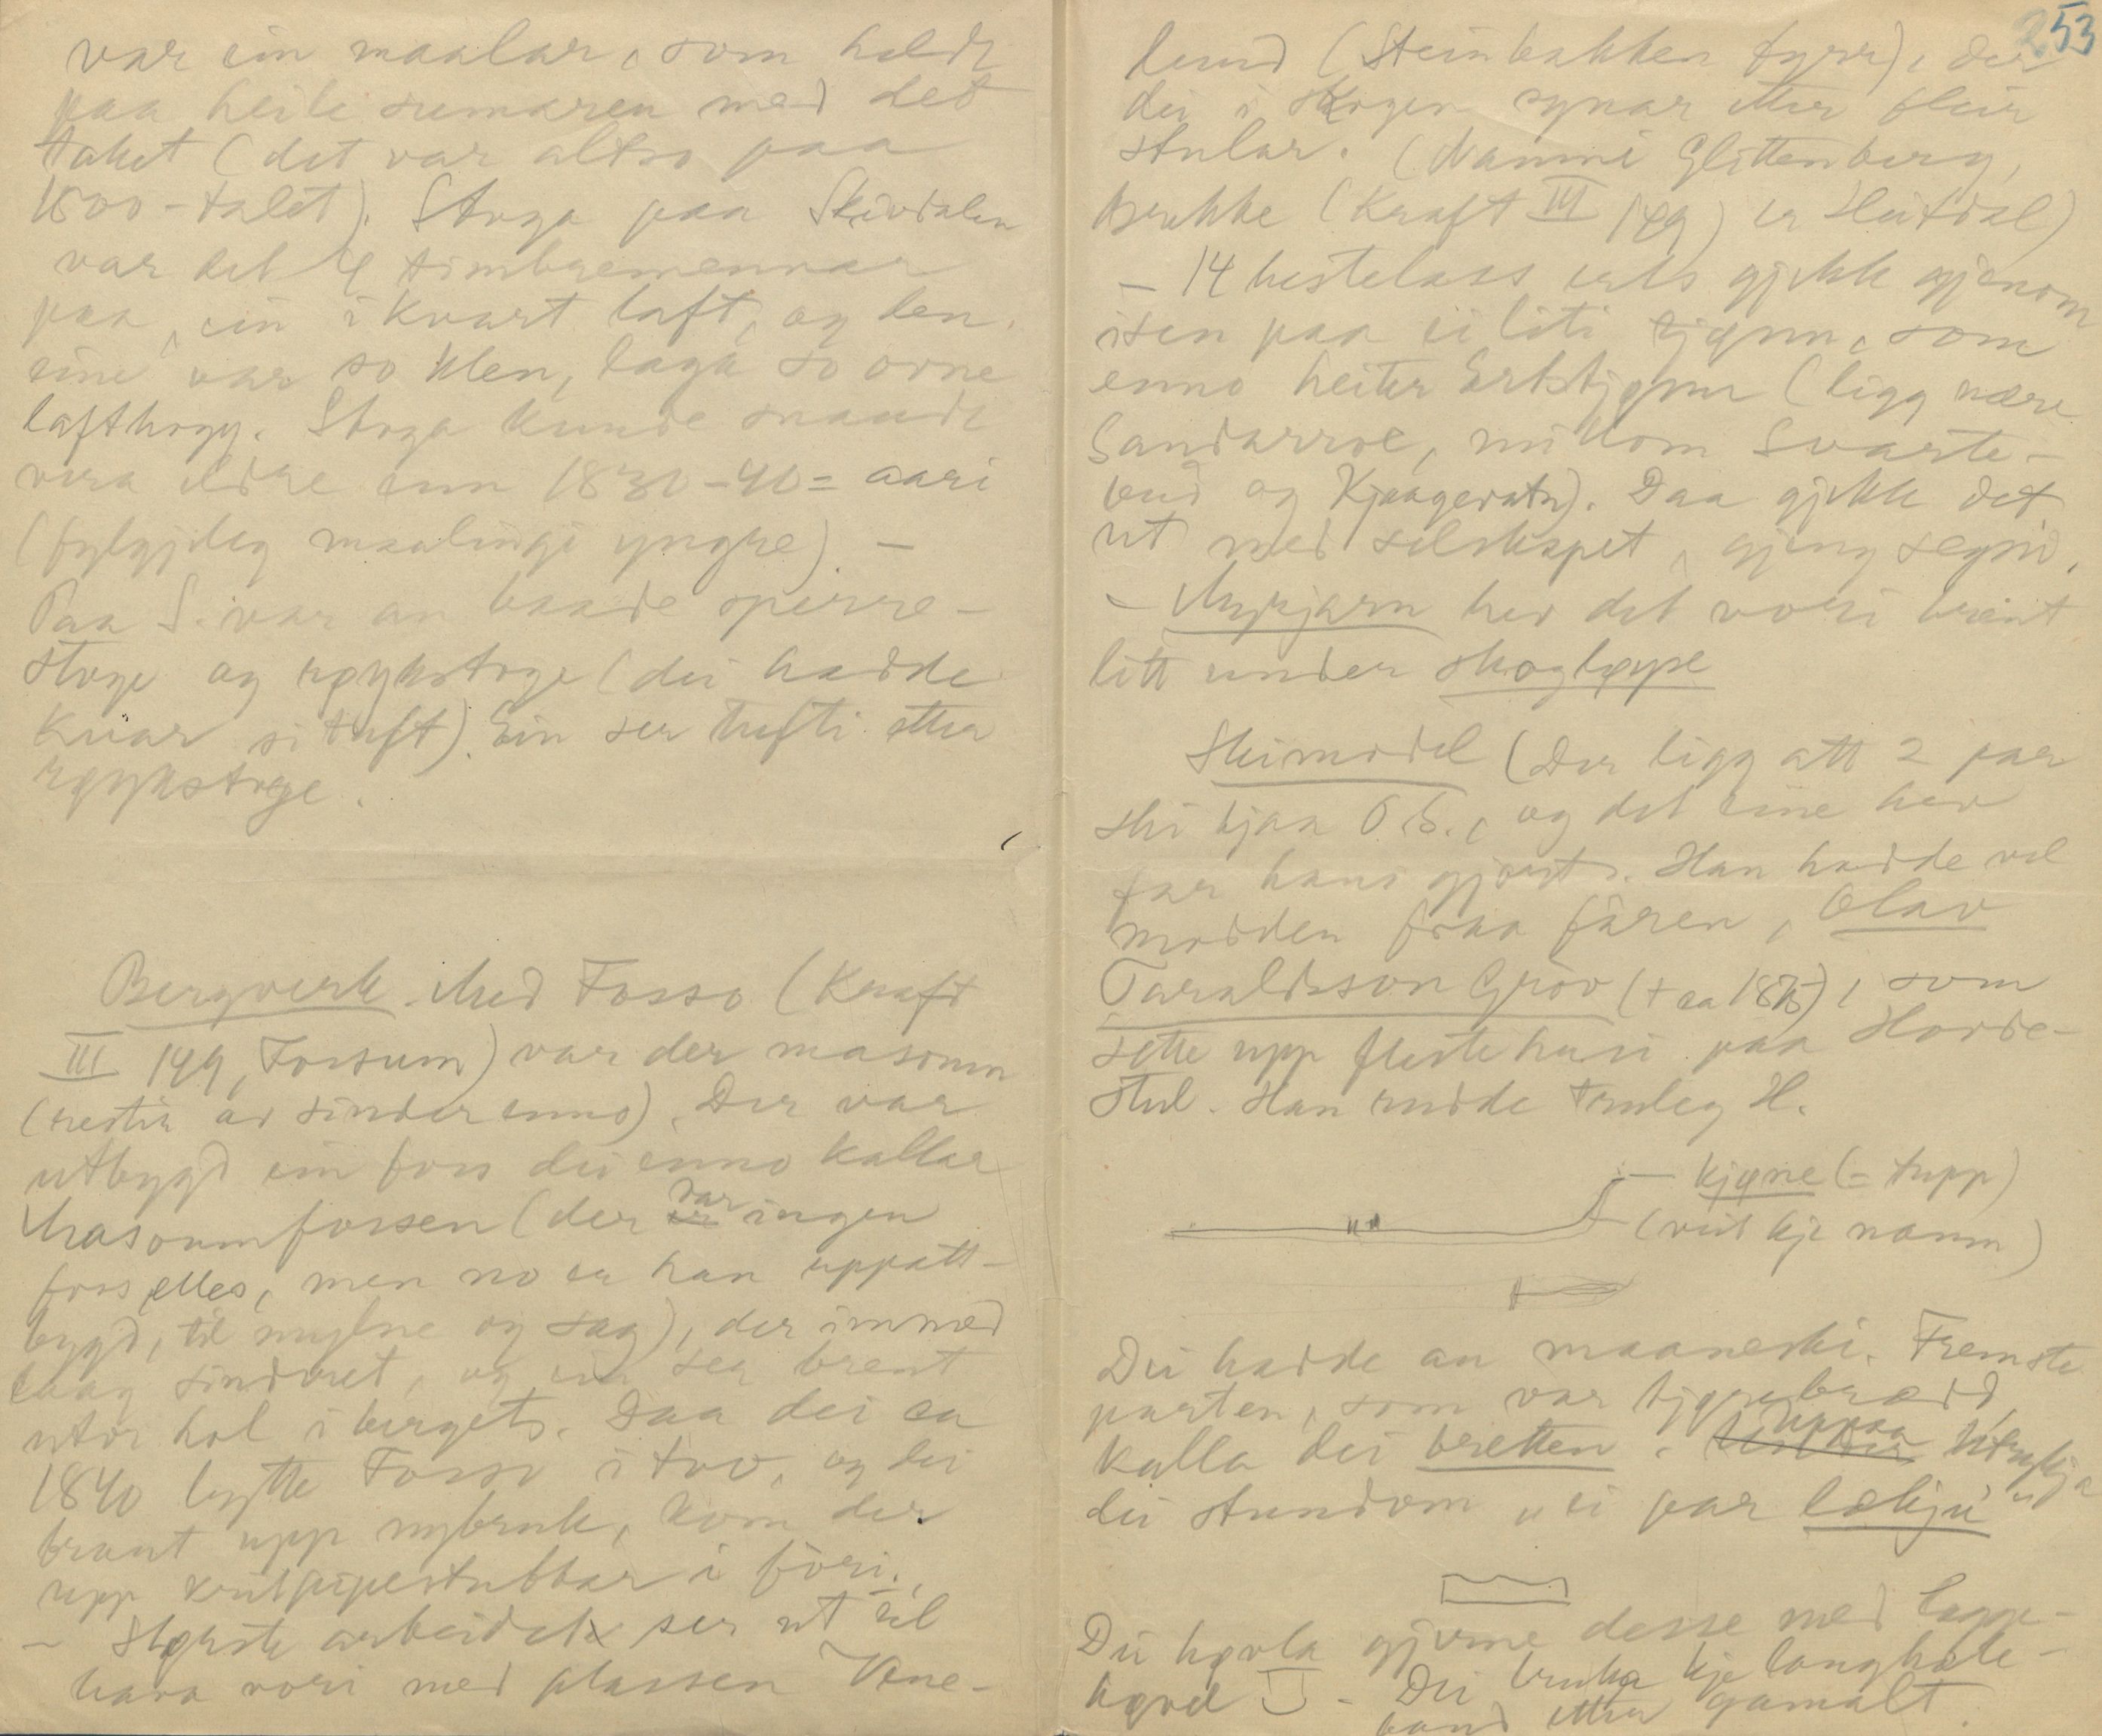 var ein maalar, som heldt
paa heile sumaren med det
taket (det var altso paa
1800-talet). Stoga paa Skivdalen
var det 4 timbremennar
paa, ein i kvart laft, og den
eine var so klen, laga so orne
lafthogg. Stoga kunde snaudt
vera eldre enn 1830-40-aari
(fylgjeleg maalingi yngre). —
Paa S. var an baade sperre-
stoge og røykstoge (dei hadde
kvar si tuft). Ein ser tufti etter
røykstoge.
Bergverk. Med Fosso (Kraft
III 149, Fossum) var der masomn
(restir av sinder enno). Der var
utbygd ein foss dei enno kallar
Masomnfossen (der var ingen
foss elles, men no er han uppatt-
bygd, til mylne og sag), der innmed
laag sindret, og ein ser brent
utor hol i berget. Daa dei ca
1840 bytte Fosso i tvo, og dei
braut upp nybruk, kom der
upp kritpipestubbar i fòri.
— Største arbeidet ser ut til
hava vori med plassen Vine-
253
lund (Steinbakken fyrr), der
dei i skogen synar etter fleir
stular. (Namni Glittenberg,
Brekke (Kraft III 149) er Heitdal)
— 14 hestelass erts gjekk gjenom
isen paa ei liti tjønn, som
enno heiter Ertstjønn (ligg nære
Sandarroe, millom Svarte-
bud og Kjaagevatn). Daa gjekk det
ut med selskapet, gjeng segnd.
— Myrjarn hev det vori brent
litt under skogløype
Skimodel (Der ligg att 2 par
ski hjaa O.S., og det eine hev
far hans gjort. Han hadde vel
modden fraa fåren, Olav
Taraldsson Grov (+ ca 1875), som
sette upp fleste husi paa Hovde-
stul. Han rudde truleg H.
— kjøne (= tupp)
— (veit kje namn)
Dei hadde an maaneski. Fremste
parten, som var tjggrebreidd,
kalla dei bretten. Uppaa Utrykkja
dei stundom "ei par lækju"
Dei høvla gjerne desse med lagge-
høvel — Dei bruka kje langhøle-
band etter gamalt.